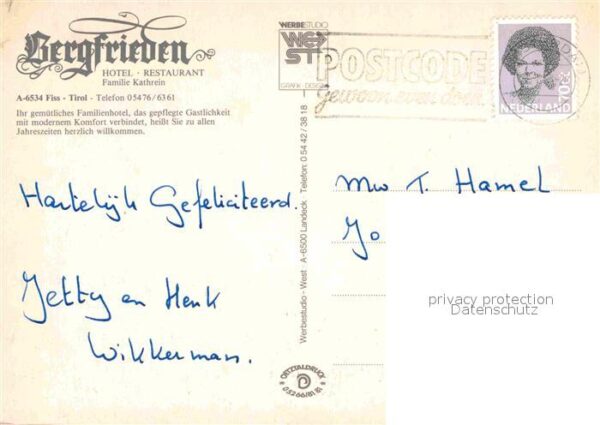 Bergfrieden
HOTEL · RESTAURANT
Familie Kathrein
A-6534 Fiss - Tirol - Telefon 05476/6361
Ihr gemütliches Familienhotel, das gepflegte Gastlichkeit
mit modernem Komfort verbindet, heißt Sie zu allen
Jahreszeiten herzlich willkommen.
WERBESTUDIO
WEST
GRAFIK - DESIGN
POSTCODE
gewoon even doen
NEDERLAND
Hartelijk Gefeliciteerd.
Jetty en Henk
Wikkerman.
Werbestudio - West A-6500 Landeck Telefon: 0 54 42 / 38 18
ÖTZTALDRUCK
Mw T. Hamel
Jo
privacy protection
Datenschutz